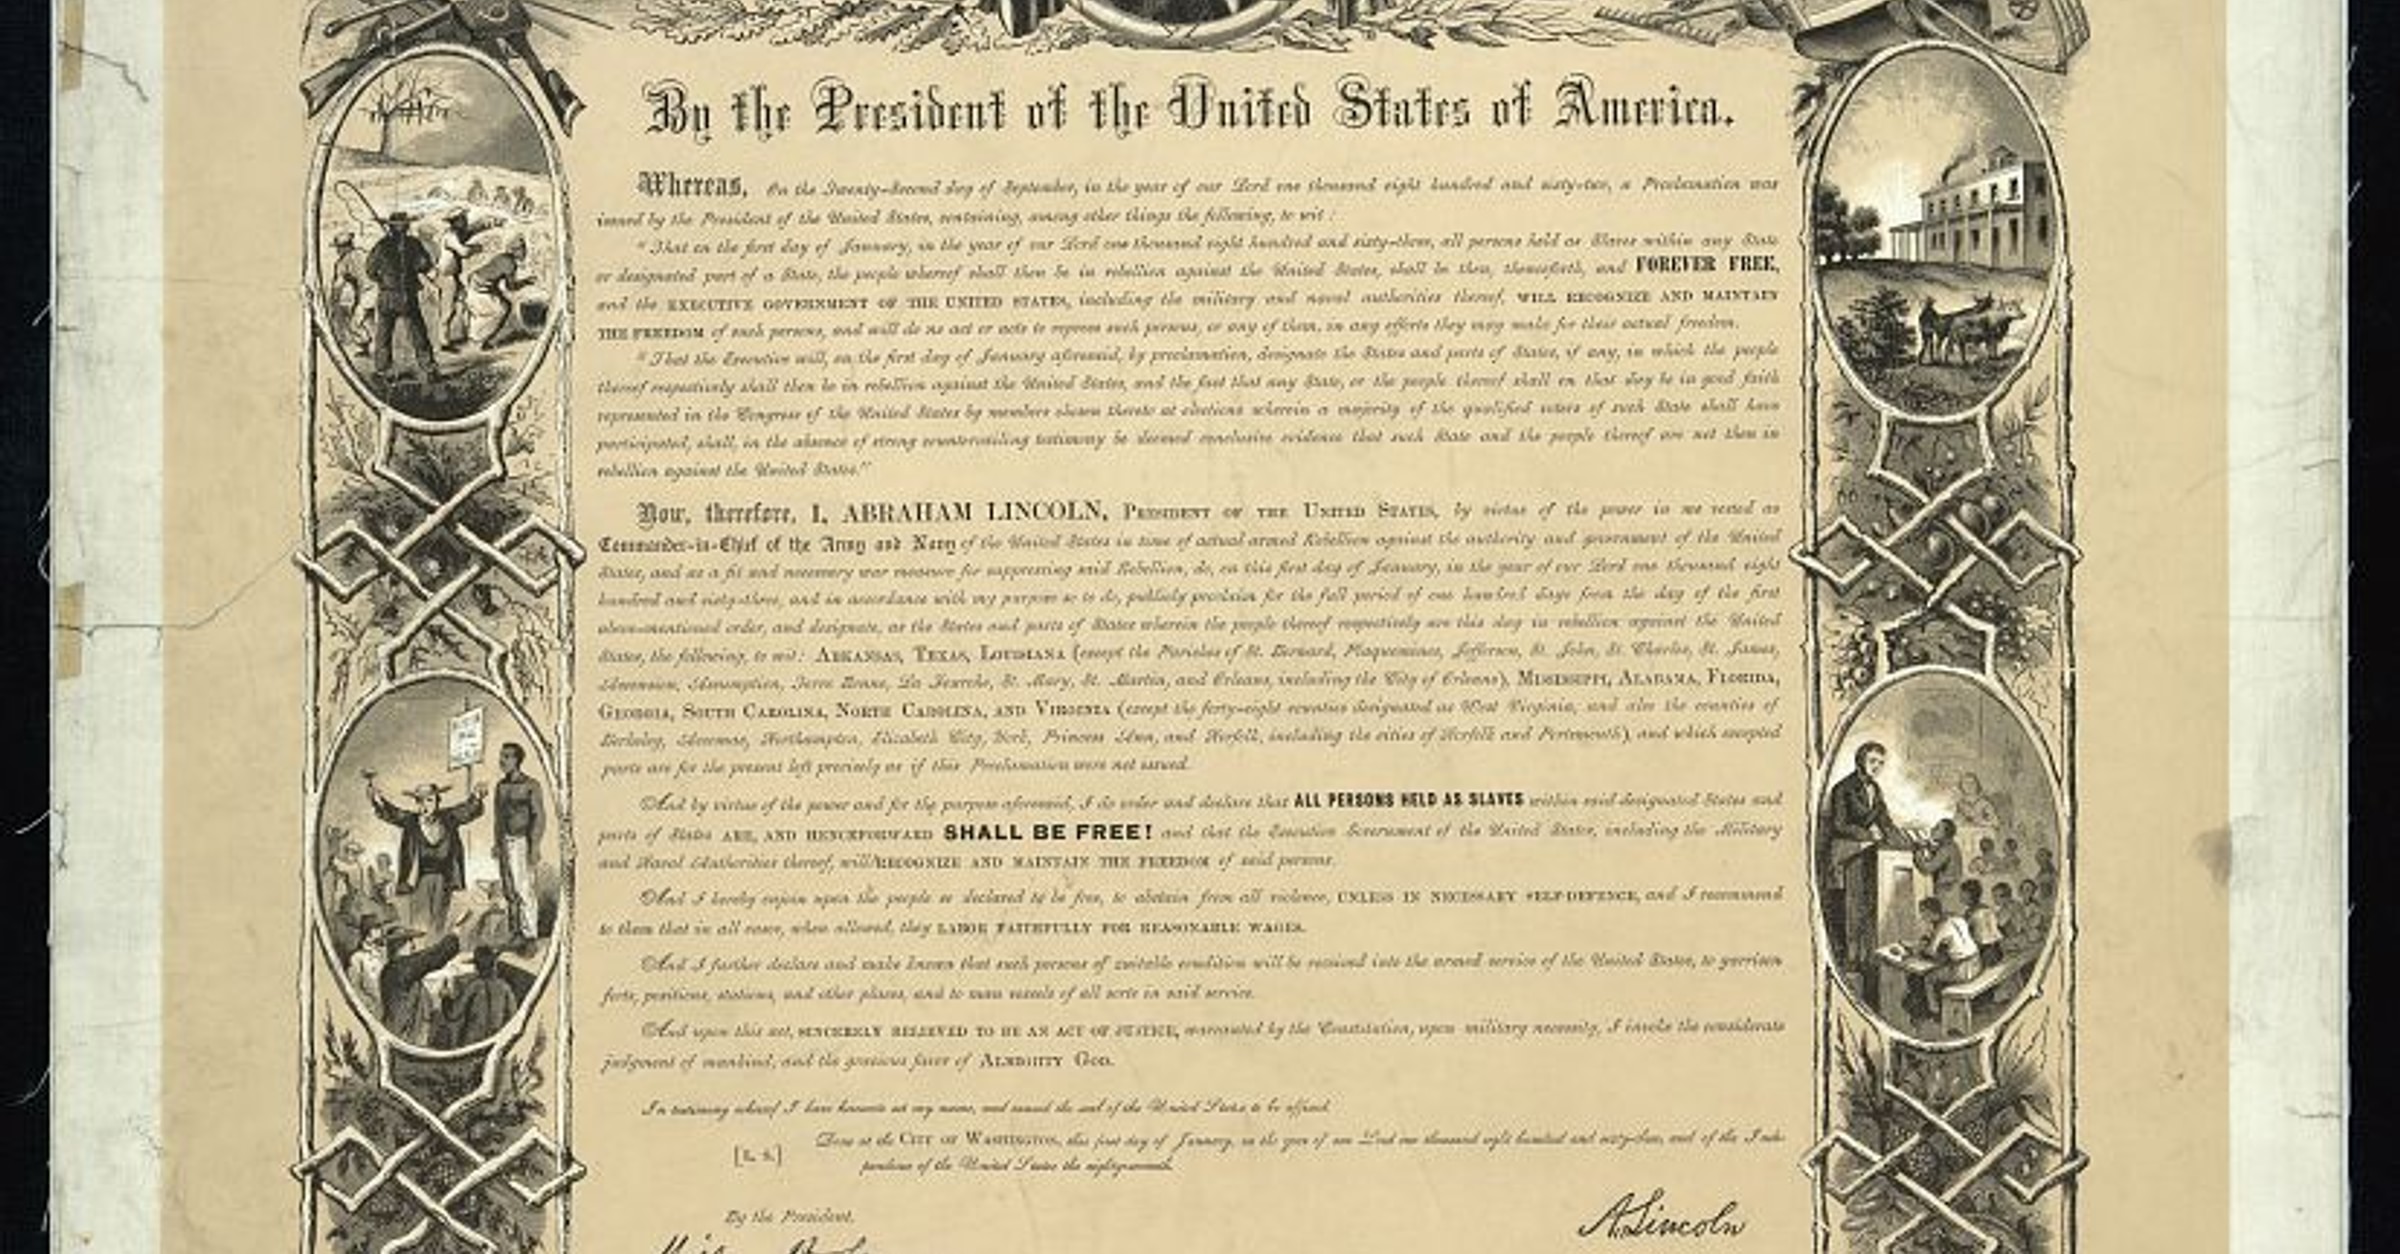 By the President of the United States of America.
Whereas, On the Twenty-Second day of September, in the year of our Lord one thousand eight hundred and sixty-two, a Proclamation was
issued by the President of the United States, containing, among other things the following, to wit:
"That on the first day of January, in the year of our Lord one thousand eight hundred and sixty-three, all persons held as Slaves within any State
or designated part of a State, the people whereof shall then be in rebellion against the United States, shall be then, thenceforth, and FOREVER FREE,
and the EXECUTIVE GOVERNMENT OF THE UNITED STATES, including the military and naval authorities thereof, WILL RECOGNIZE AND MAINTAIN
THE FREEDOM of such persons, and will do no act or acts to repress such persons, or any of them, in any efforts they may make for their actual freedom.
"That the Executive will, on the first day of January aforesaid, by proclamation, designate the States and parts of States, if any, in which the people
thereof respectively shall then be in rebellion against the United States, and the fact that any State, or the people thereof shall on that day be in good faith
represented in the Congress of the United States by members chosen thereto at elections wherein a majority of the qualified voters of such State shall have
participated, shall, in the absence of strong countervailing testimony be deemed conclusive evidence that such State and the people thereof are not then in
rebellion against the United States."
Now, therefore, I, ABRAHAM LINCOLN, PRESIDENT OF THE UNITED STATES, by virtue of the power in me vested as
Commander-in-Chief of the Army and Navy of the United States in time of actual armed Rebellion against the authority and government of the United
States, and as a fit and necessary war measure for suppressing said Rebellion, do, on this first day of January, in the year of our Lord one thousand eight
hundred and sixty-three, and in accordance with my purpose so to do, publicly proclaim for the full period of one hundred days from the day of the first
above-mentioned order, and designate, as the States and parts of States wherein the people thereof respectively are this day in rebellion against the United
States, the following, to wit: ARKANSAS, TEXAS, LOUISIANA (except the Parishes of St. Bernard, Plaquemines, Jefferson, St. John, St. Charles, St. James,
Ascension, Assumption, Terre Bonne, La Fourche, St. Mary, St. Martin, and Orleans, including the City of Orleans), MISSISSIPPI, ALABAMA, FLORIDA,
GEORGIA, SOUTH CAROLINA, NORTH CAROLINA, AND VIRGINIA (except the forty-eight counties designated as West Virginia, and also the counties of
Berkeley, Accomac, Northampton, Elizabeth City, York, Princess Ann, and Norfolk, including the cities of Norfolk and Portsmouth), and which excepted
parts are for the present left precisely as if this Proclamation were not issued.
And by virtue of the power and for the purpose aforesaid, I do order and declare that ALL PERSONS HELD AS SLAVES within said designated States and
parts of States ARE, AND HENCEFORWARD SHALL BE FREE! and that the Executive Government of the United States, including the Military
and Naval Authorities thereof, will RECOGNIZE AND MAINTAIN THE FREEDOM of said persons.
And I hereby enjoin upon the people so declared to be free, to abstain from all violence, UNLESS IN NECESSARY SELF-DEFENCE, and I recommend
to them that in all cases, when allowed, they LABOR FAITHFULLY FOR REASONABLE WAGES.
And I further declare and make known that such persons of suitable condition will be received into the armed service of the United States, to garrison
forts, positions, stations, and other places, and to man vessels of all sorts in said service.
And upon this act, SINCERELY BELIEVED TO BE AN ACT OF JUSTICE, warranted by the Constitution, upon military necessity, I invoke the considerate
judgment of mankind, and the gracious favor of ALMIGHTY GOD.
In testimony whereof I have hereunto set my name, and caused the seal of the United States to be affixed.
[L. S.] Done at the CITY OF WASHINGTON, this first day of January, in the year of our Lord one thousand eight hundred and sixty-three, and of the Inde-
pendence of the United States the eighty-seventh.
By the President.
A. Lincoln